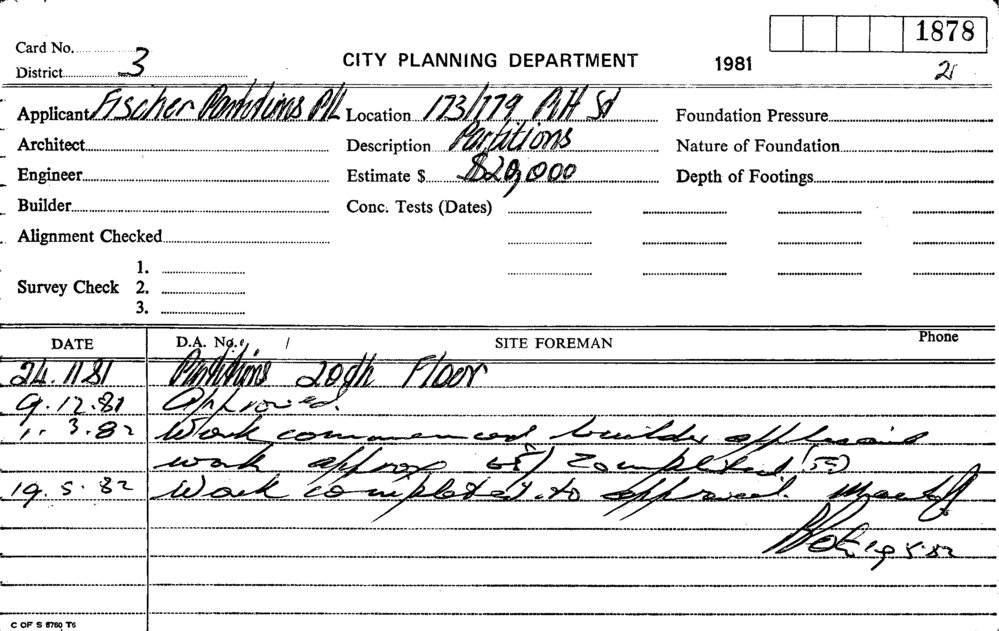 1878
Card No.
CITY PLANNING DEPARTMENT 1981
District 3 2
Applicant Fischer Partitions P/L Location 173/179 Pitt St Foundation Pressure
Architect Description Partitions Nature of Foundation
Engineer Estimate $ $20,000 Depth of Footings
Builder Conc. Tests (Dates)
Alignment Checked
1.
Survey Check 2.
3.
DATE D.A. No. / SITE FOREMAN Phone
24.11.81 Partitions 20th Floor
9.12.81 Approved.
1.3.82 Work commenced builder
work approx completed
19.5.82 Work completed to approval.
19.5.82
C OF S 6760 T6